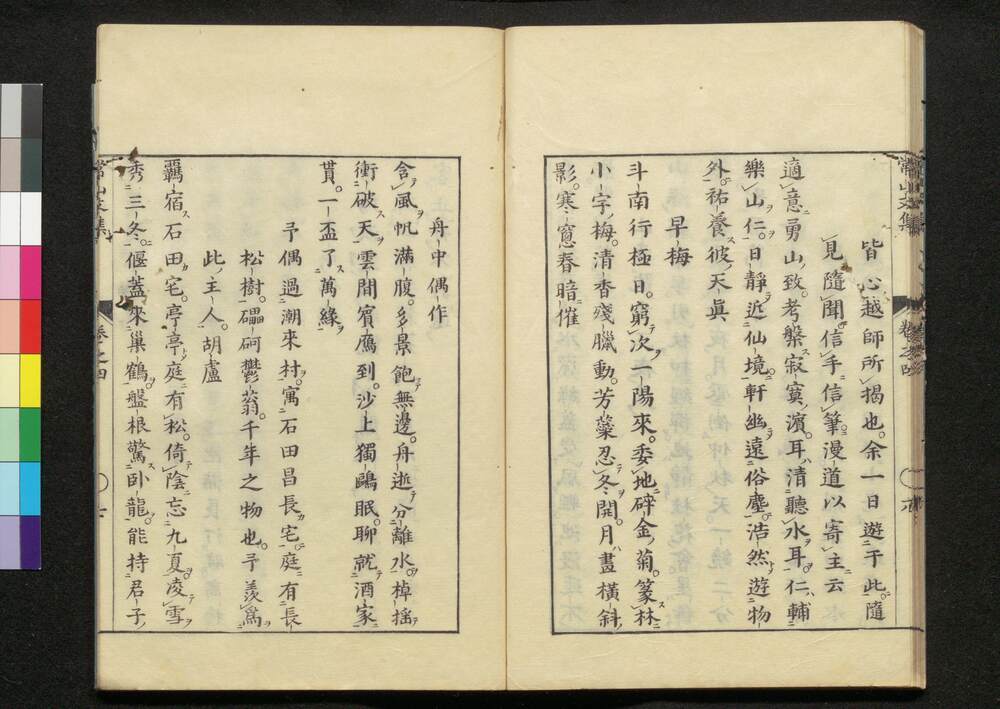 皆心越師所揭也。余一日遊于此。隨
見隨聞信手信筆。漫道以寄主云
適意勇山致。考槃寂寞濱。耳清聽水耳。仁輔
樂山仁。日靜近仙境。軒幽遠俗塵。浩然遊物
外。祐養彼天眞
早梅
斗南行極日。窮次一陽來。委地碎金菊。篆林
小字梅。清香殘臘動。芳蘂忍冬開。月晝橫斜
影。寒窻春暗催
舟中偶作
含風帆滿腹。多景飽無邊。舟逝分離水。棹搖
衝破天。雲間賓鴈到。沙上獨鷗眠。聊就酒家
貰。一盃了萬緣
予偶過潮來村。寓石田昌長宅。庭有長
松樹。礧砢鬱蓊。千年之物也。予羨爲
此主人。胡盧
羈宿石田宅。亭亭庭有松。倚陰忘九夏。凌雪
秀三冬。偃蓋來巢鶴。盤根驚臥龍。能持君子
常山文集
卷之四